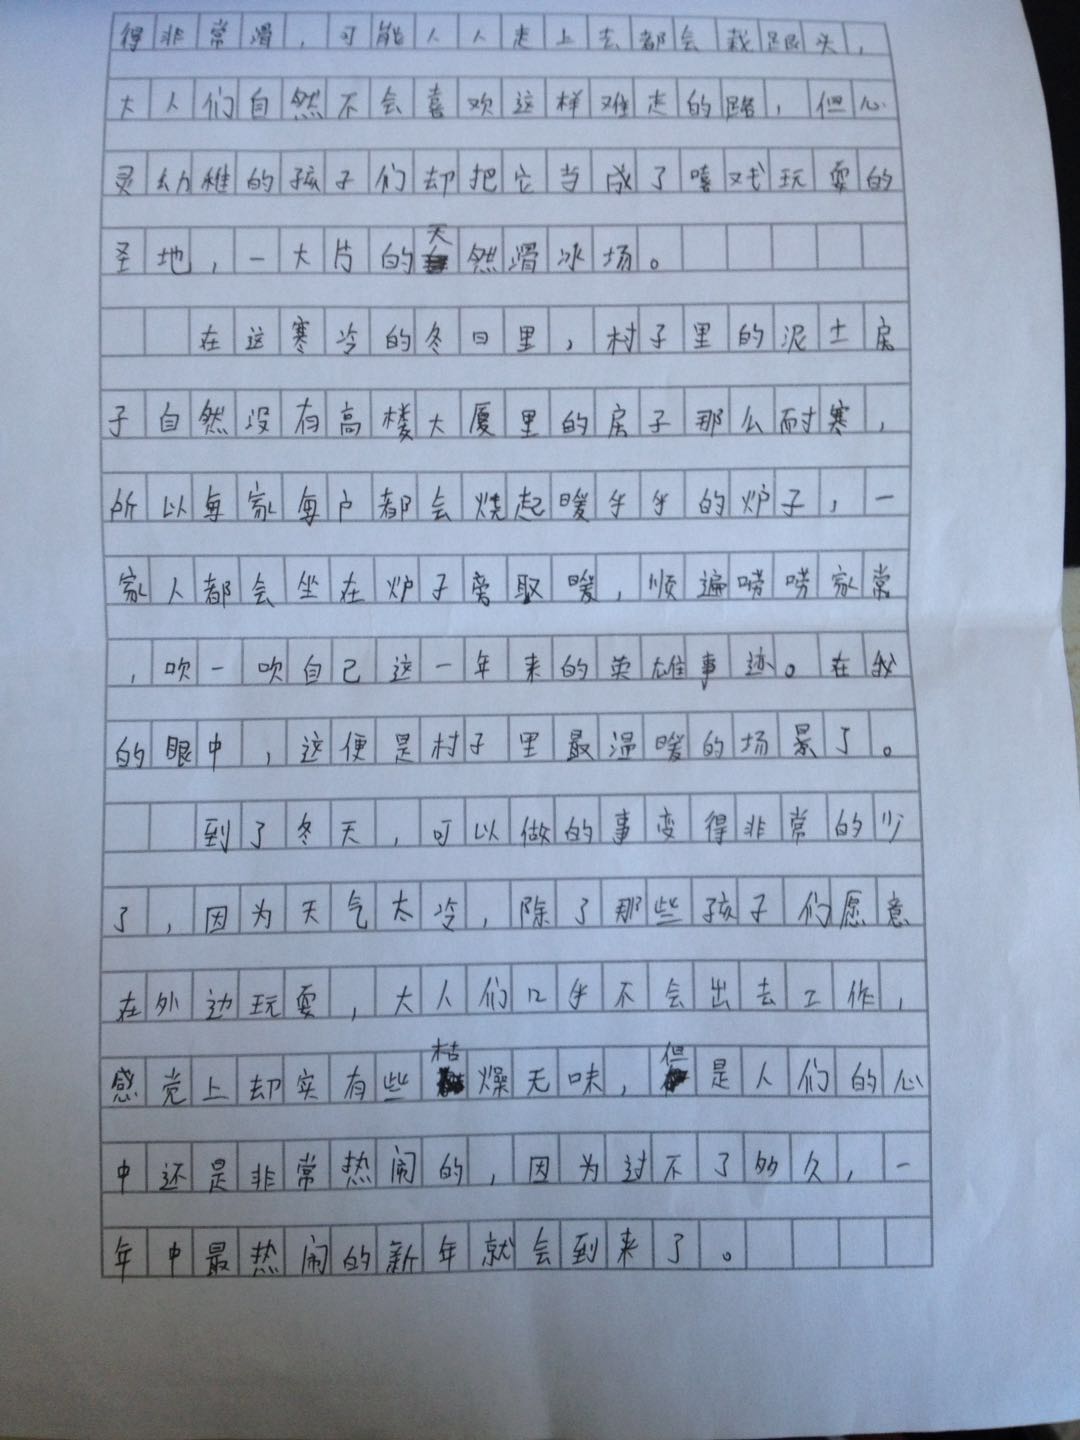 得非常滑，可能人人走上去都会栽跟头，
大人们自然不会喜欢这样难走的路，但心
灵幼稚的孩子们却把它当成了嘻戏玩耍的
圣地，一大片的天然滑冰场。
在这寒冷的冬日里，村子里的泥土房
子自然没有高楼大厦里的房子那么耐寒，
所以每家每户都会烧起暖乎乎的炉子，一
家人都会坐在炉子旁取暖，顺遍唠唠家常
，吹一吹自己这一年来的英雄事迹。在我
的眼中，这便是村子里最温暖的场景了。
到了冬天，可以做的事变得非常的少
了，因为天气太冷，除了那些孩子们愿意
在外边玩耍，大人们几乎不会出去工作，
感觉上却实有些枯燥无味，但是人们的心
中还是非常热闹的，因为过不了多久，一
年中最热闹的新年就会到来了。